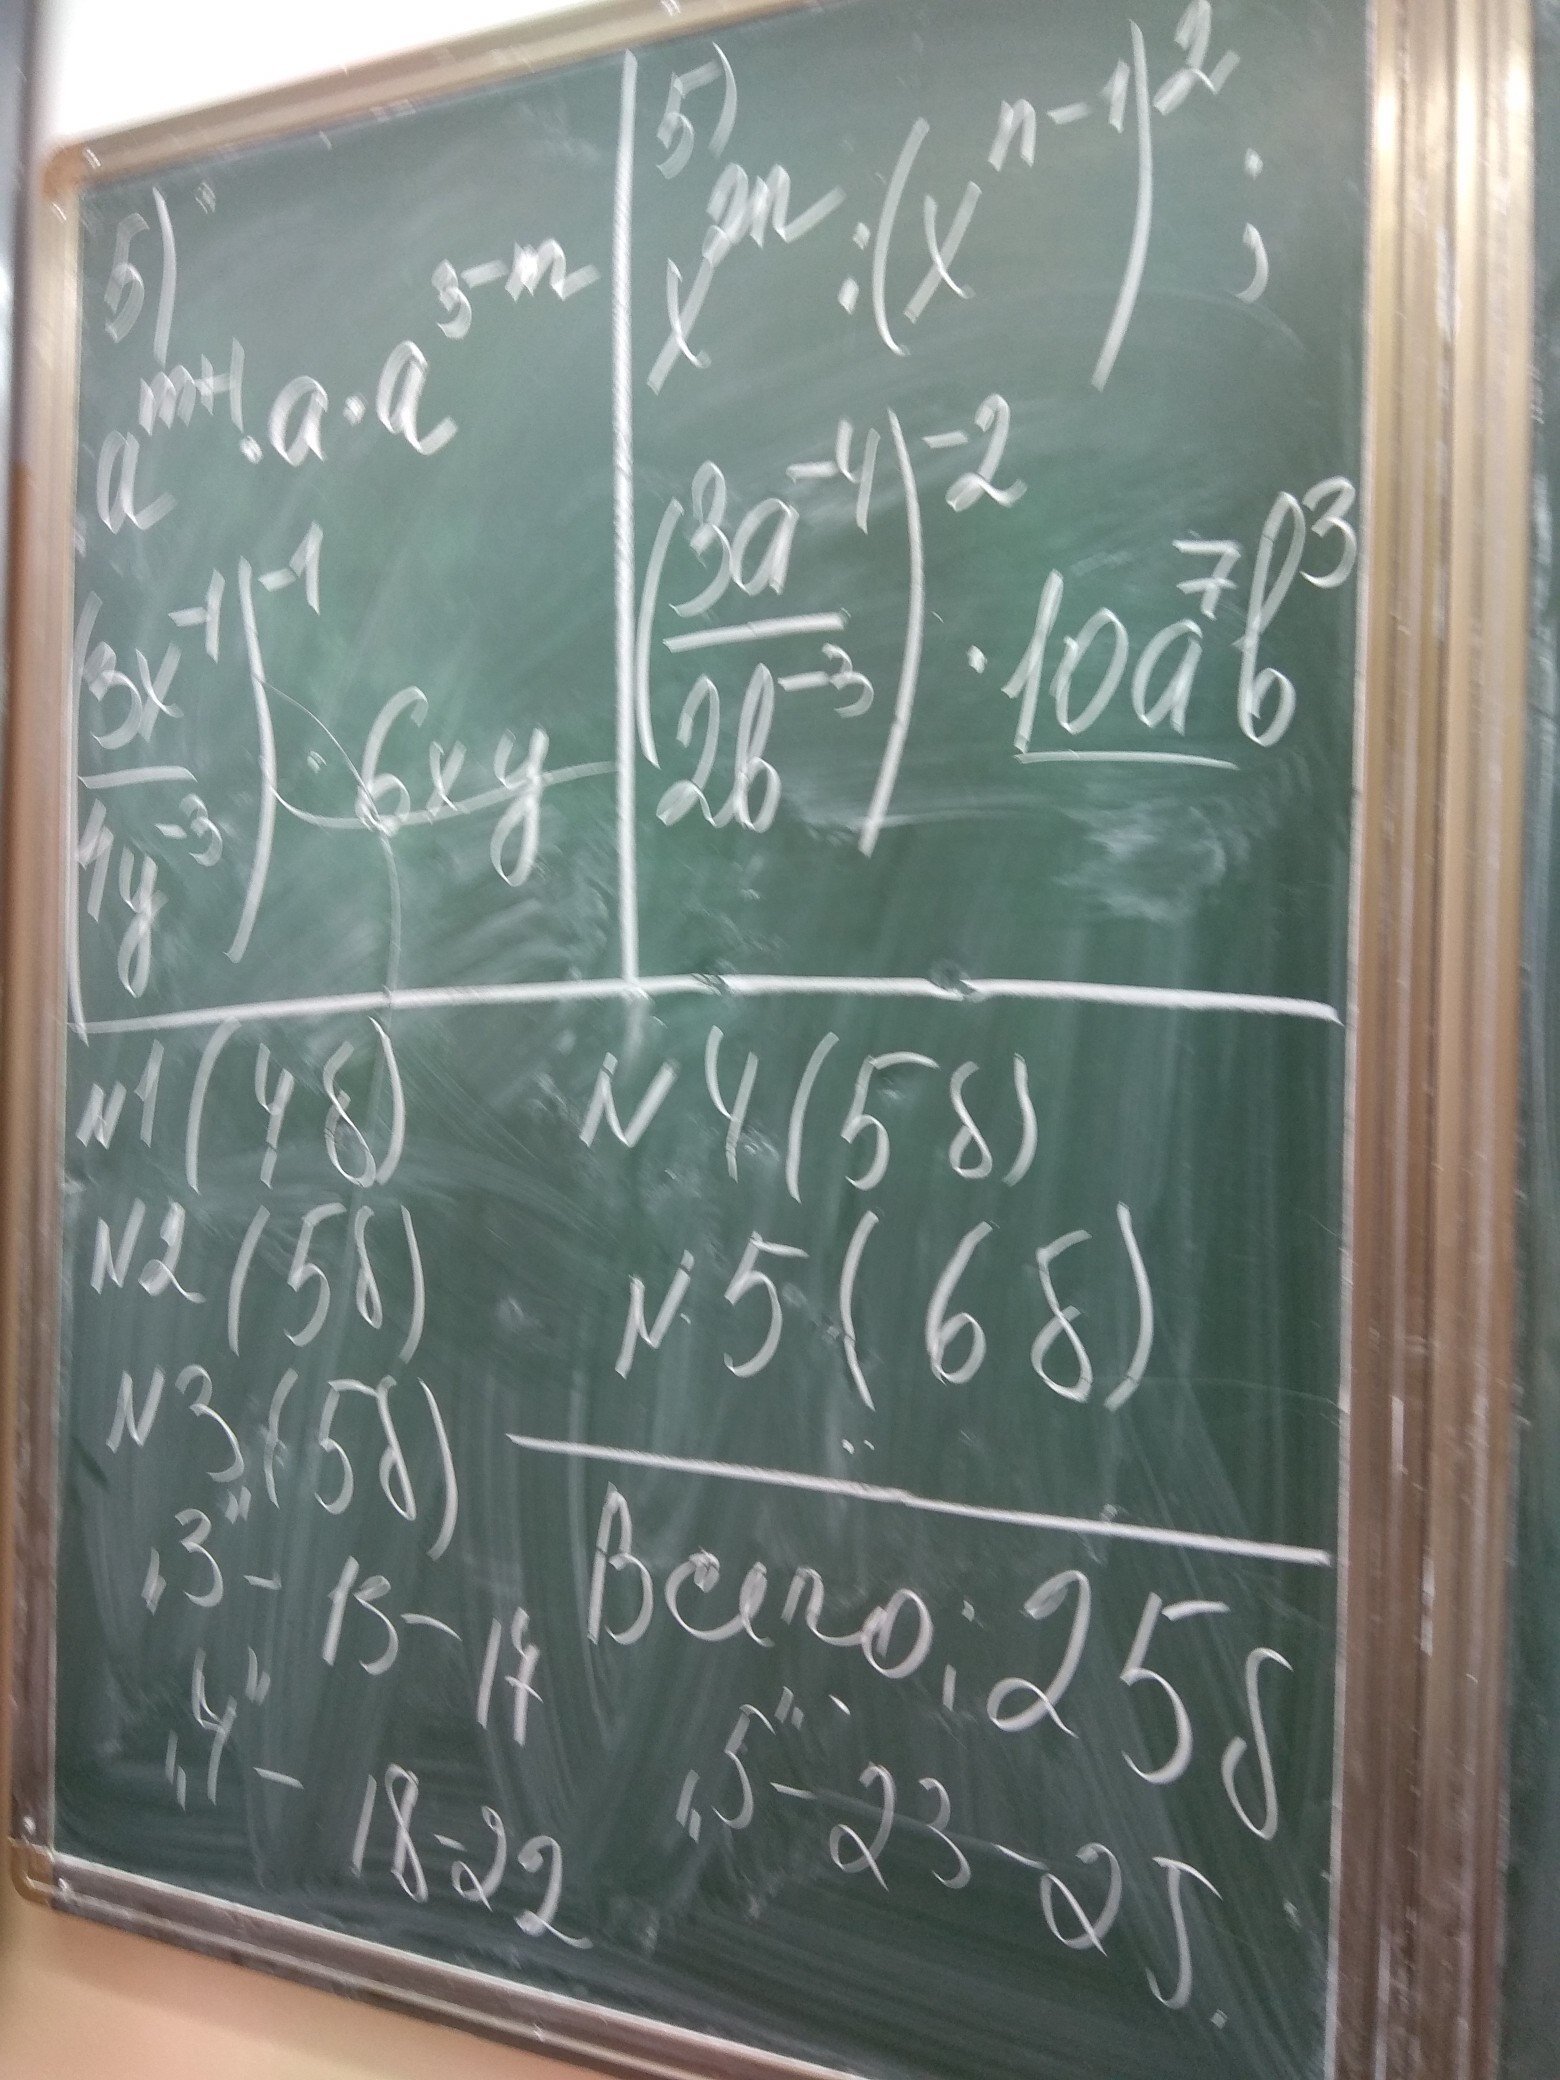 5)
a^{m+1} · a · a^{3-m}
(3x^{-1} / 4y^{-3})^{-1} · 6xy
5)
x^{2n} : (x^{n-1})^2 ;
(3a^{-4} / 2b^{-3})^{-2} · 10a^7b^3
N1 (4б)
N2 (5б)
N3 (5б)
N4 (5б)
N5 (6б)
Всего: 25б
„3" - 13-17
„4" - 18-22
„5" - 23-25.